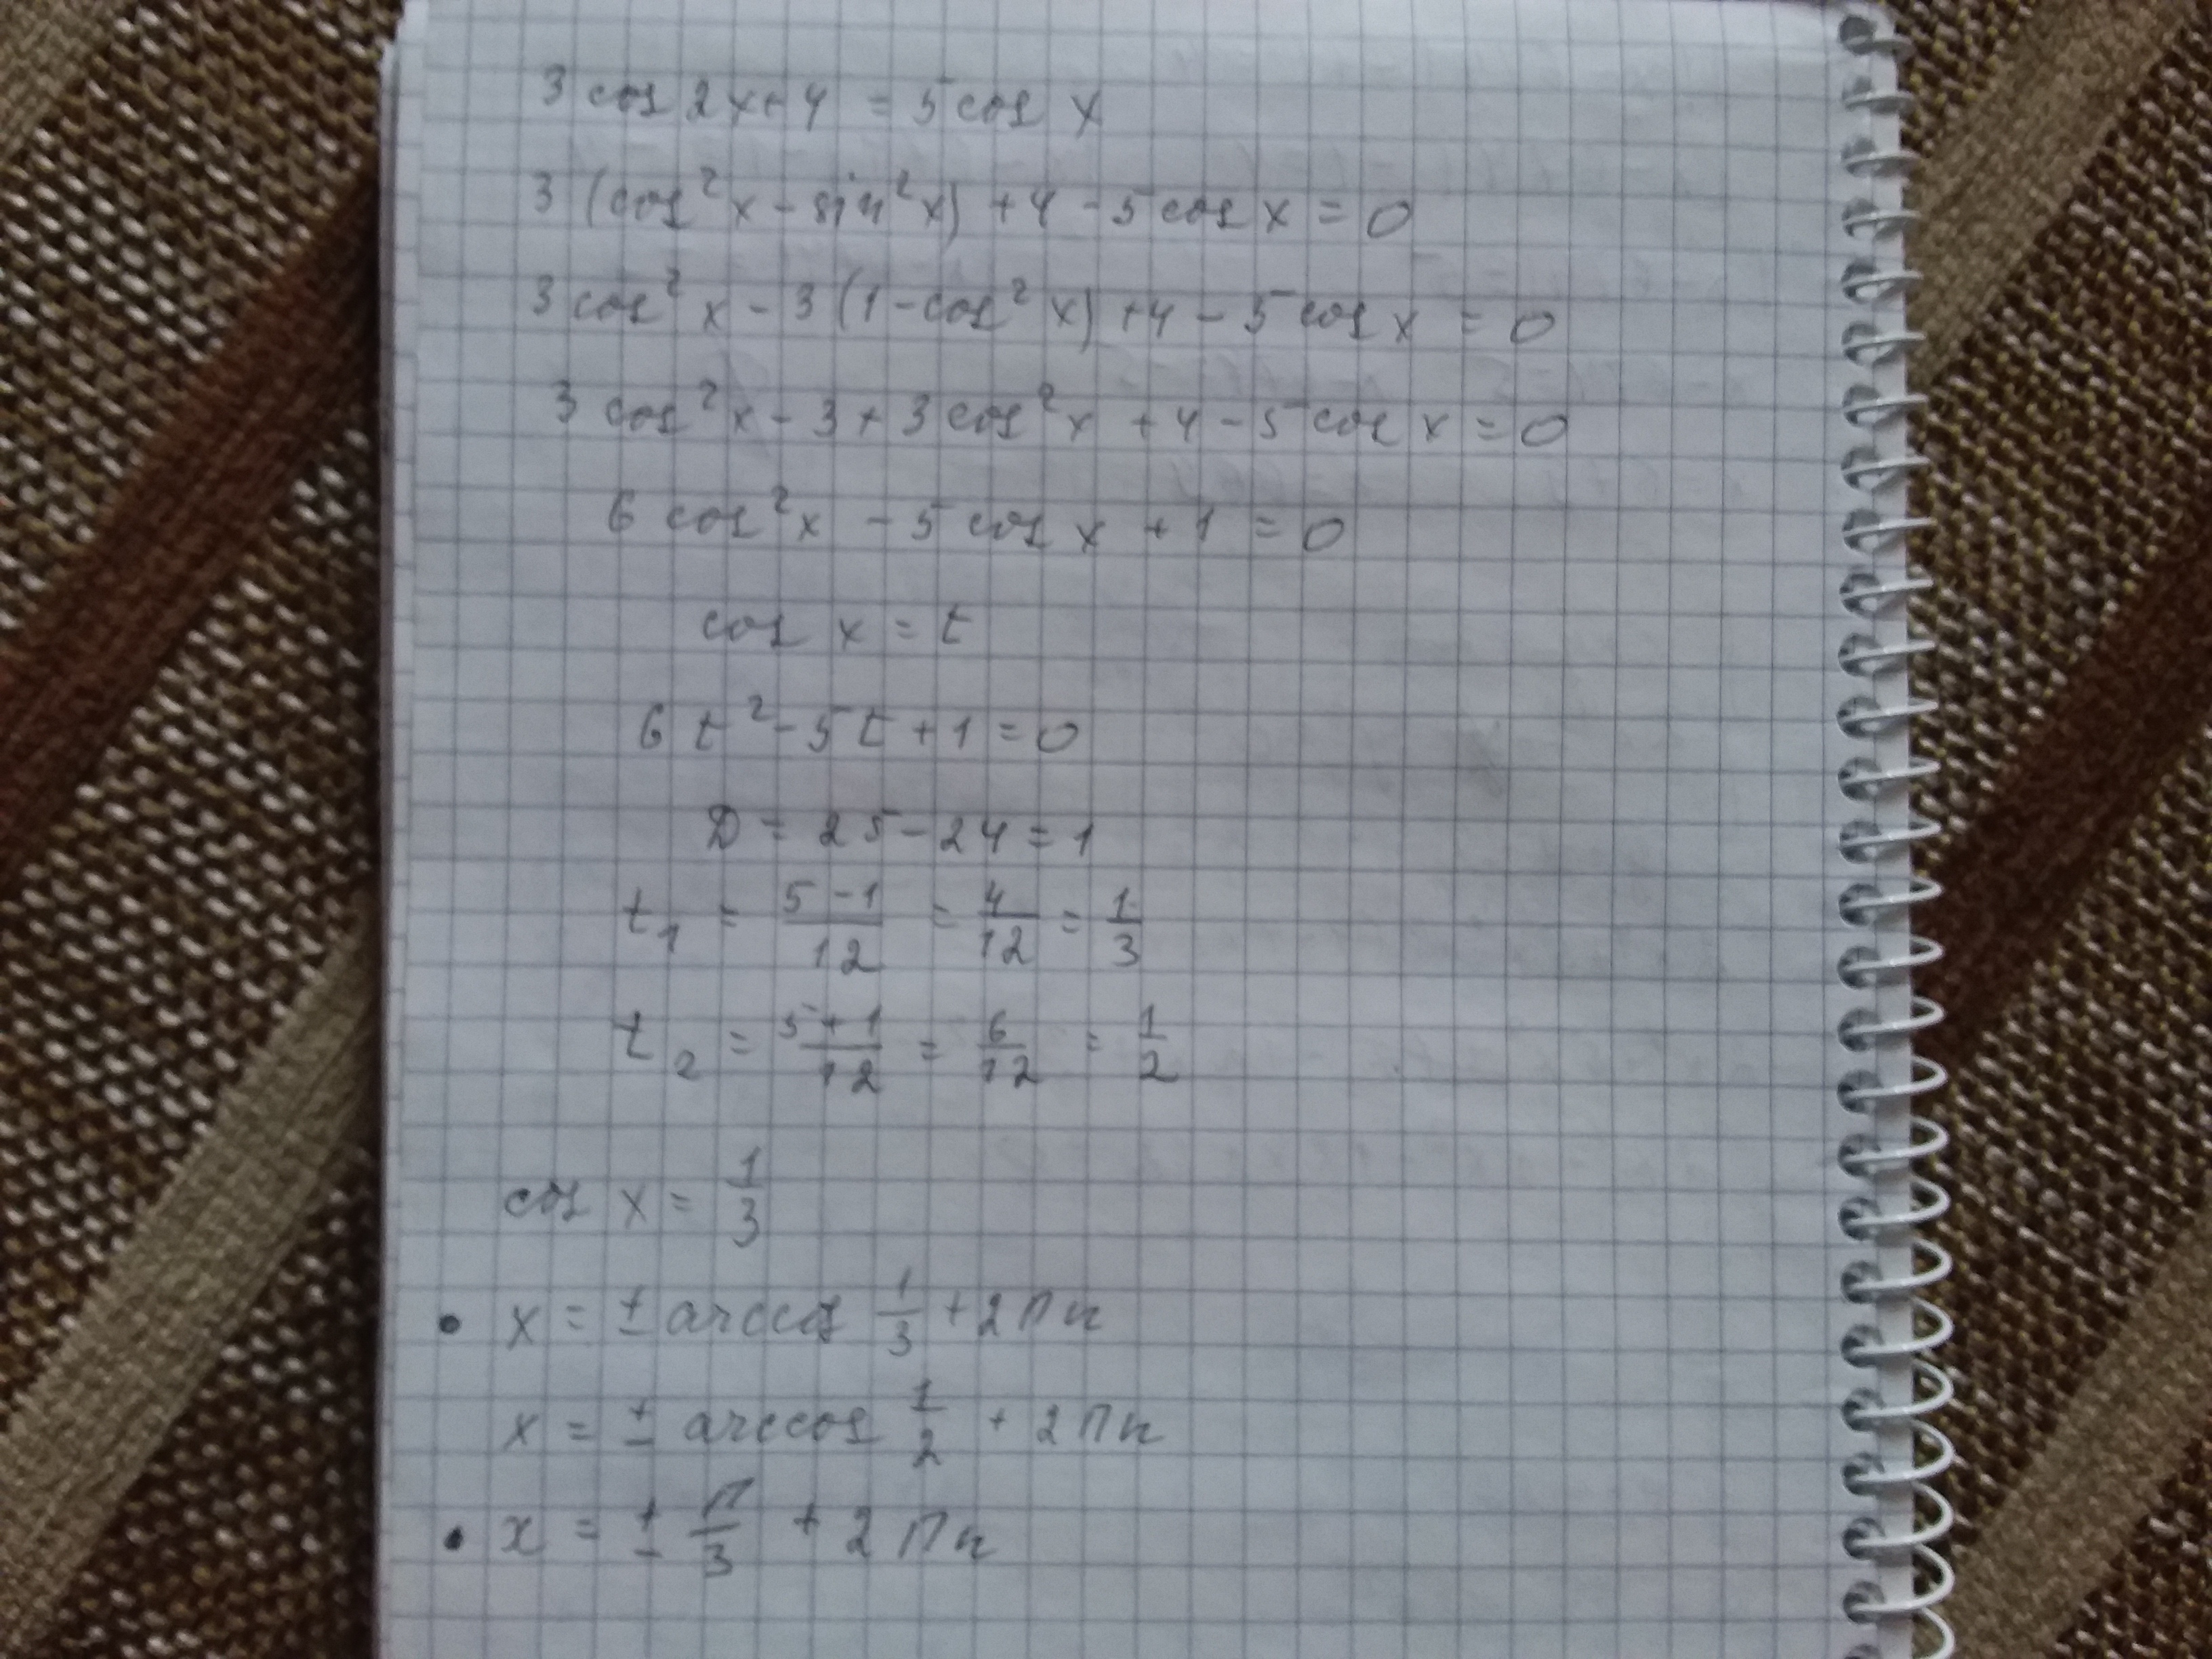 3 cos 2x + 4 = 5 cos x
3 (cos²x - sin²x) + 4 - 5 cos x = 0
3 cos²x - 3 (1 - cos²x) + 4 - 5 cos x = 0
3 cos²x - 3 + 3 cos²x + 4 - 5 cos x = 0
6 cos²x - 5 cos x + 1 = 0
cos x = t
6t² - 5t + 1 = 0
D = 25 - 24 = 1
t₁ = (5-1)/12 = 4/12 = 1/3
t₂ = (5+1)/12 = 6/12 = 1/2
cos x = 1/3
• x = ± arccos 1/3 + 2πn
x = ± arccos 1/2 + 2πn
• x = ± π/3 + 2πn